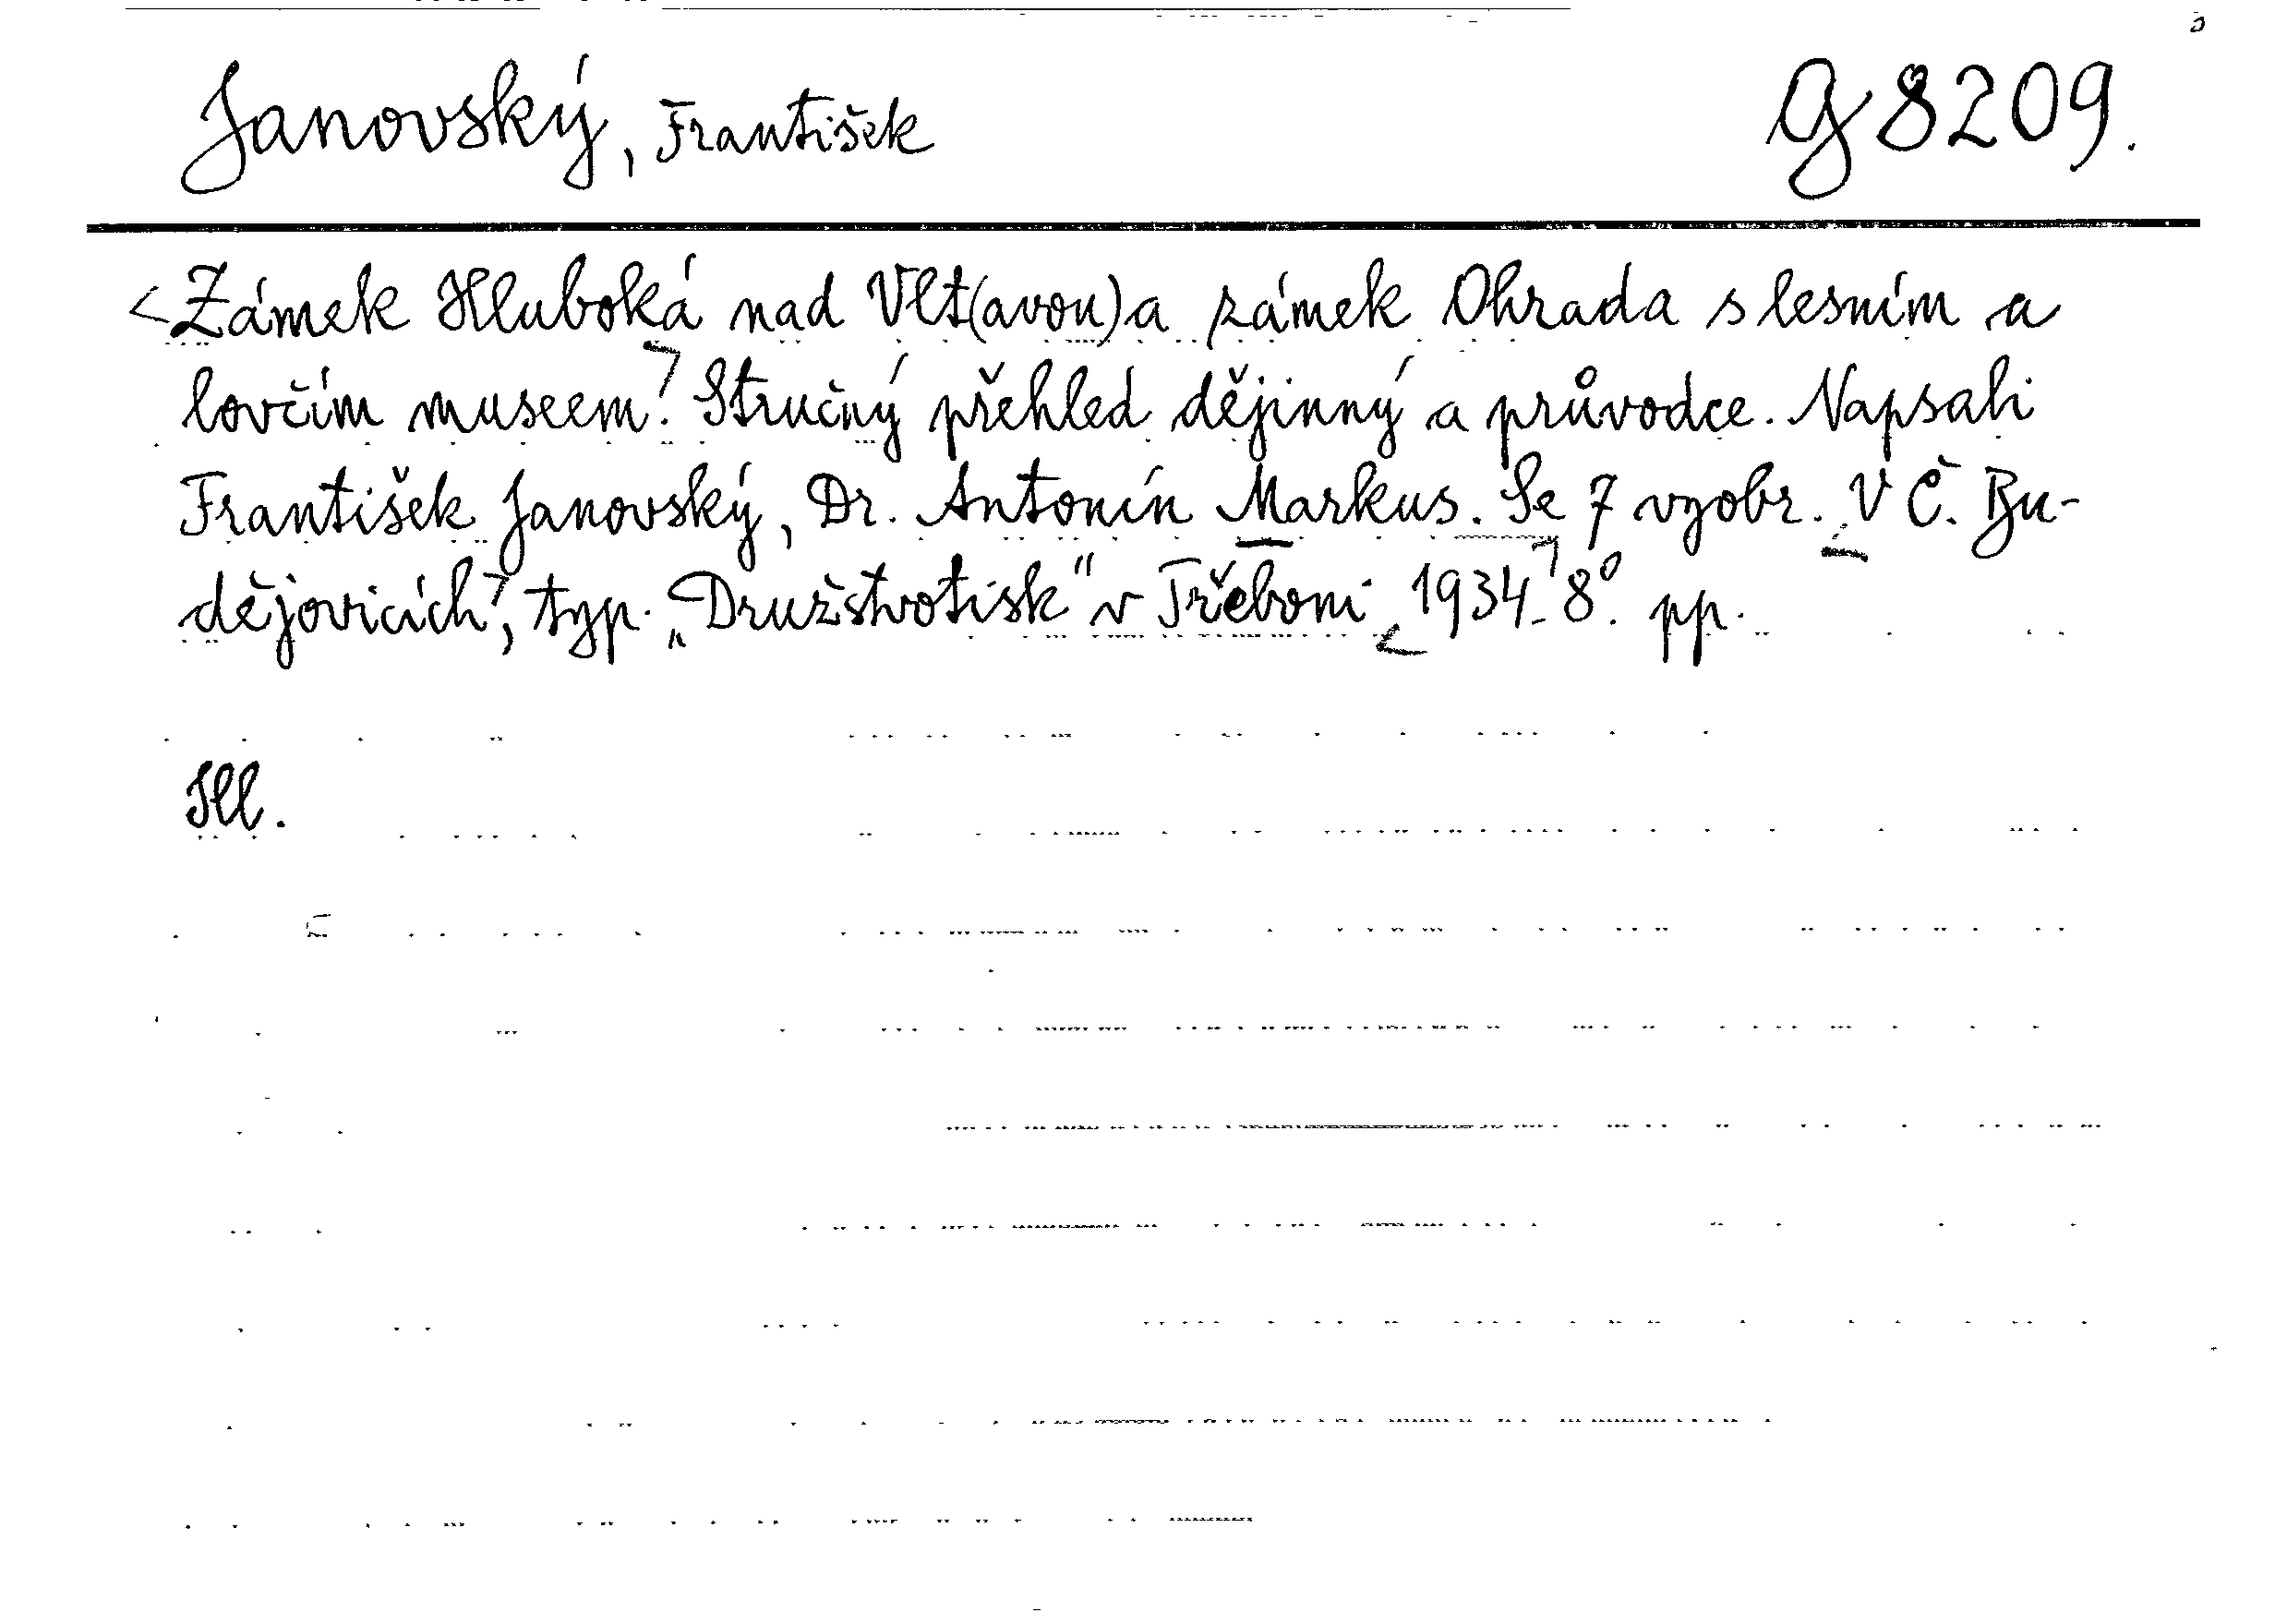 Janovský, František G 8209.
Zámek Hluboká nad Vlt(avou) a zámek Ohrada s lesním a
lovčím museem. Stručný přehled dějinný a průvodce. Napsali
František Janovský, Dr. Antonín Markus. Se 7 vyobr. V Č. Bu-
dějovicích, typ. „Družstvotisk" v Třeboni 1934. 8°. pp.
Ill.